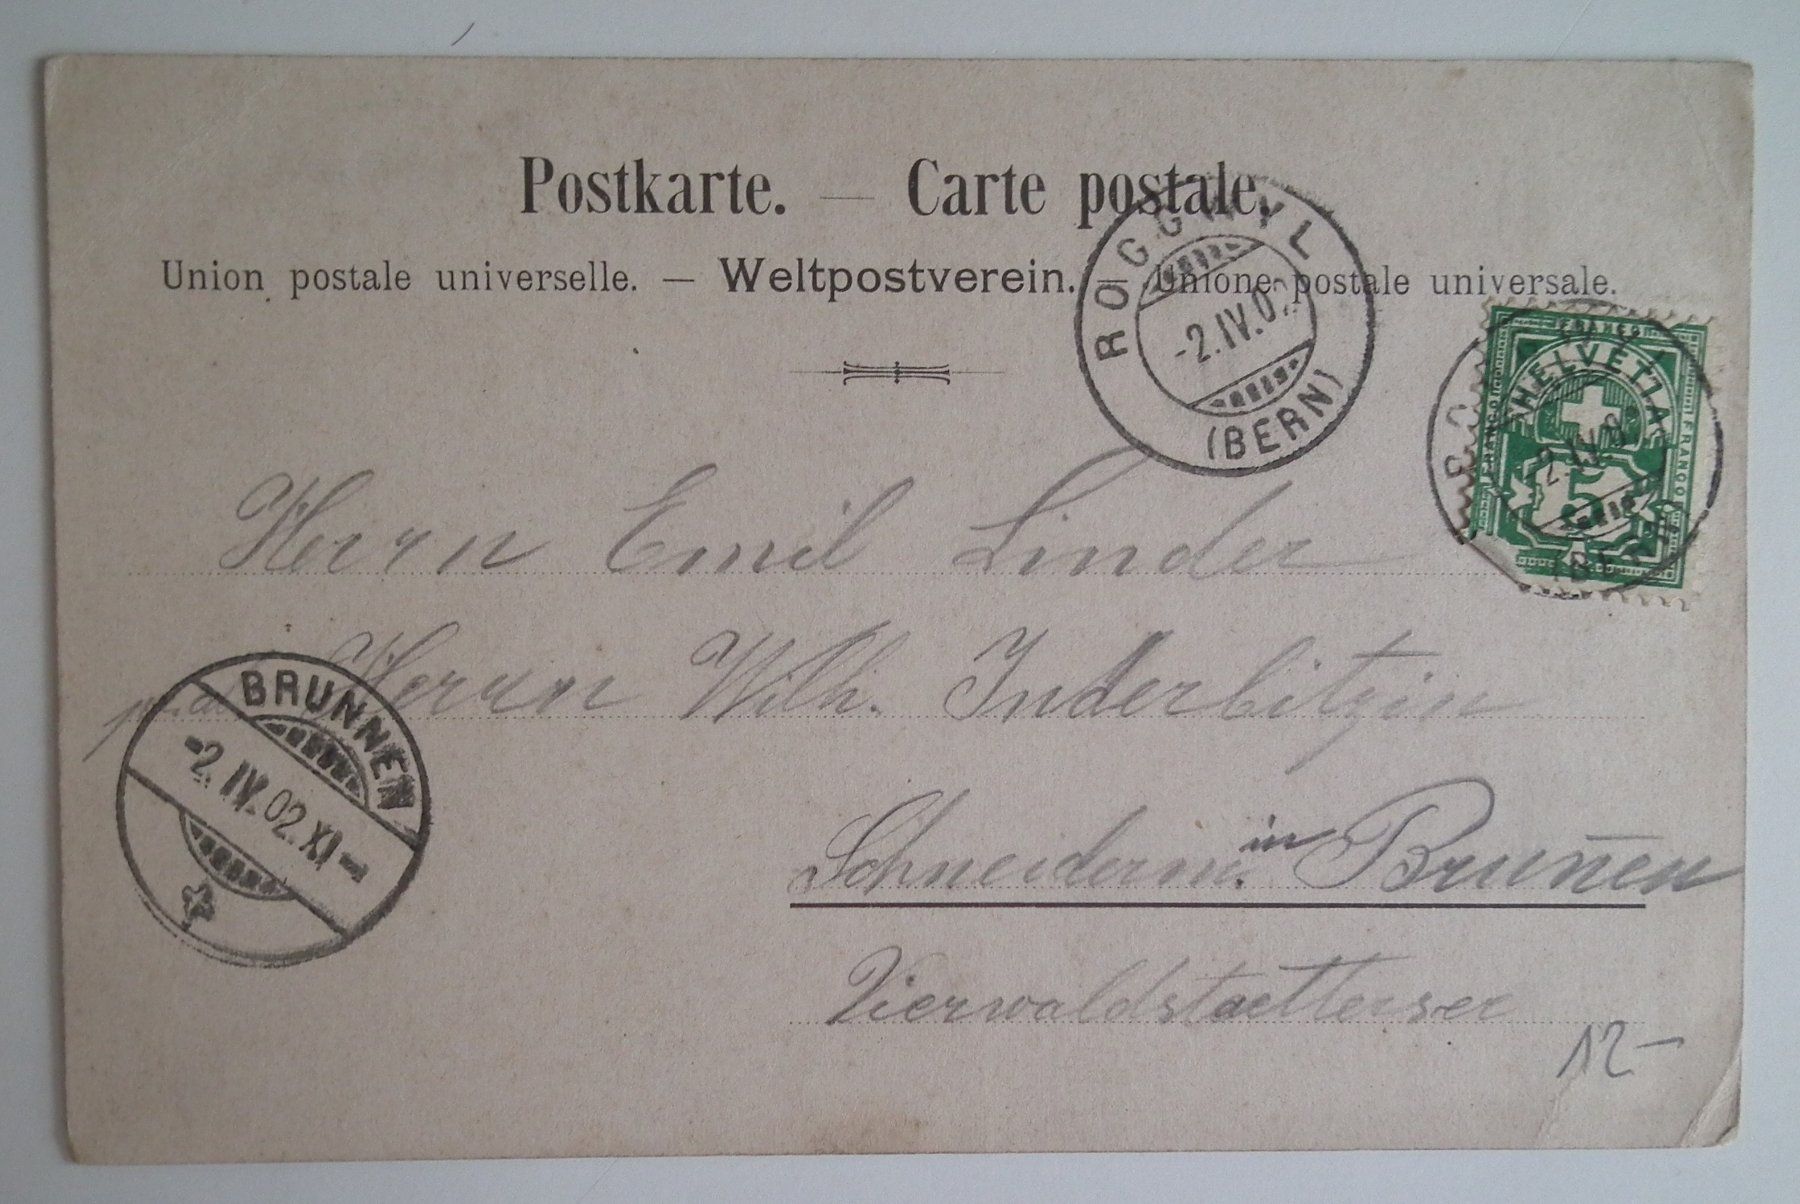 Postkarte. — Carte postale.
Union postale universelle. — Weltpostverein. — Unione postale universale.
ROGGWYL
-2.IV.02
(BERN)
FRANCO
HELVETIA
FRANCO
FRANCO
5
2.IV.0
(BERN)
Herrn Emil Linder
Herrn Wilh. Inderbitzin
BRUNNEN
-2. IV. 02. XI-
Schneiderm. in Brun̄en
Vierwaldstaettersee
12-